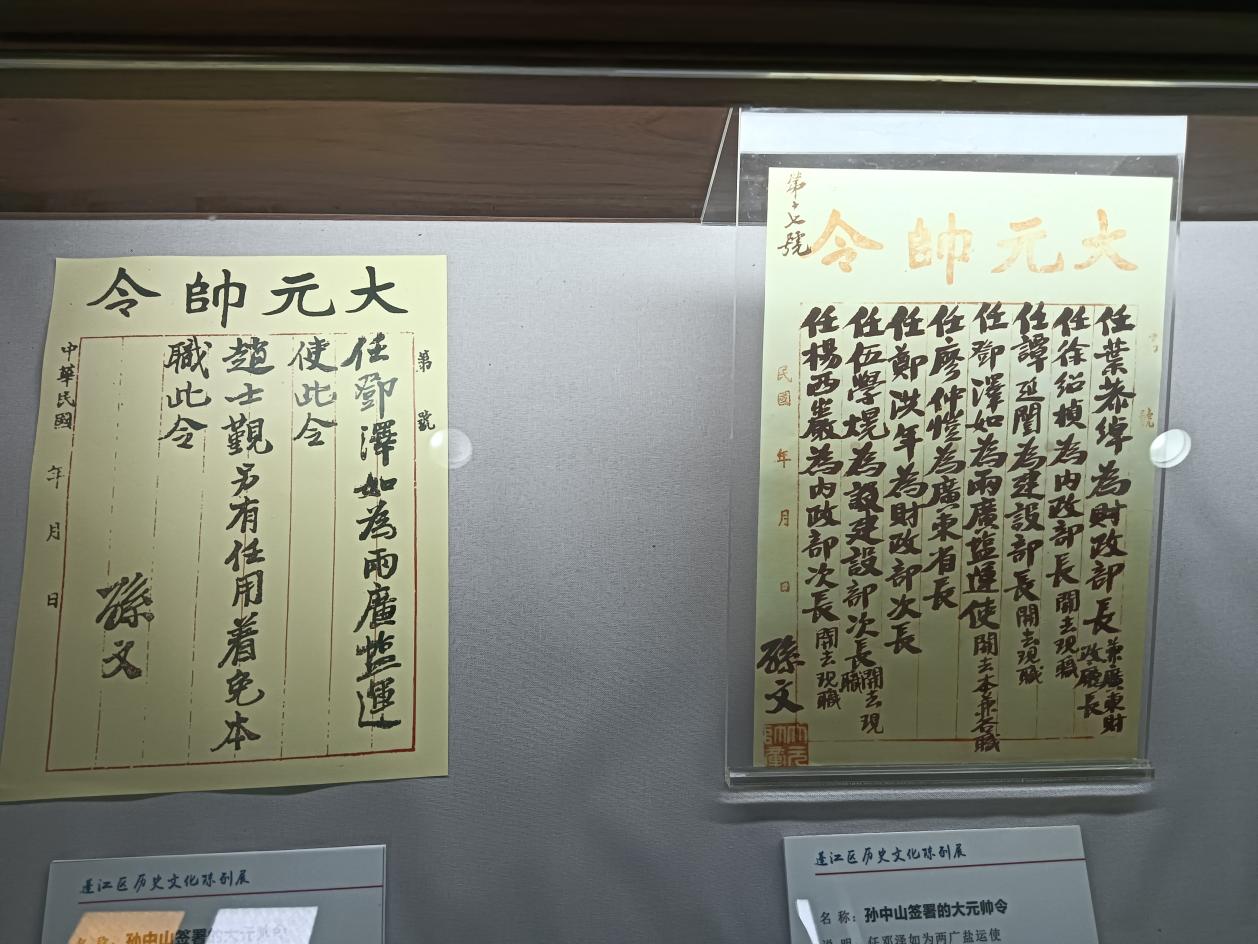 大元帥令
第 號
任鄧澤如為兩廣鹽運
使此令
趙士覲另有任用着免本
職此令
孫文
中華民國 年 月 日
大元帥令
號
任葉恭綽為財政部長兼廣東財
政廳長
任徐紹楨為內政部長開去現職
任譚延闓為建設部長開去現職
任鄧澤如為兩廣鹽運使開去本兼各職
任廖仲愷為廣東省長
任鄭洪年為財政部次長
任伍學熀為建設部次長開去現
職
任楊西巖為內政部次長開去現職
孫文
民國 年 月 日
第十七號
蓬江区历史文化陈列展
名 称：孙中山签署的大元帅令
蓬江区历史文化陈列展
名 称：孙中山签署的大元帅令
说 明：任邓泽如为两广盐运使